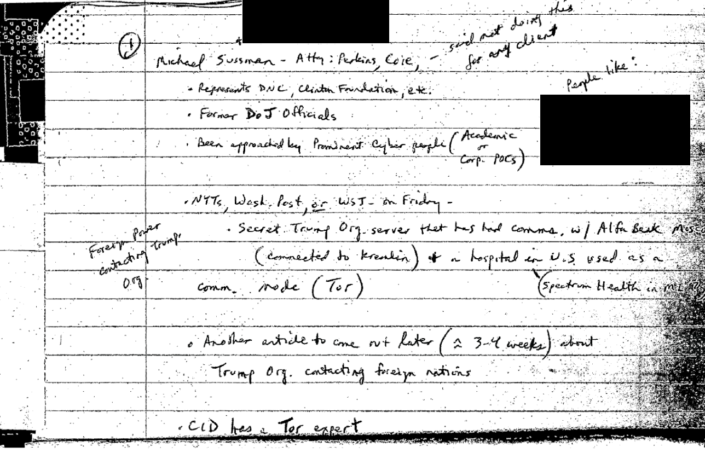 1
Michael Sussman - Atty: Perkins, Coie, - said not doing this for any client
• Represents DNC, Clinton Foundation, etc.
• Former DoJ Officials
People like:
• Been approached by Prominent Cyber people (Academic or Corp. POCs)
• NYTs, Wash. Post, or WSJ - on Friday -
Foreign Power contacting Trump Org.
• Secret Trump Org. server that has had comms. w/ Alfa Bank
(connected to Kremlin) + a hospital in U.S. used as a
comm. node (Tor) (Spectrum Health in
• Another article to come out later (≈ 3-4 weeks) about
Trump Org. contacting foreign nations
• CID has a Tor expert